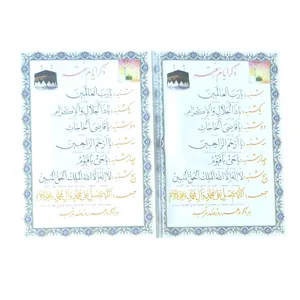 ذکر ایام هفته
شنبه: یا رب العالمین
یکشنبه: یا ذالجلال والاکرام
دوشنبه: یا قاضی الحاجات
سه شنبه: یا ارحم الراحمین
چهارشنبه: یا حی یا قیوم
پنج شنبه: لا اله الا الله الملک الحق المبین
جمعه: اللهم صل علی محمد وآل محمد
ذکر ایام هفته
شنبه: یا رب العالمین
یکشنبه: یا ذالجلال والاکرام
دوشنبه: یا قاضی الحاجات
سه شنبه: یا ارحم الراحمین
چهارشنبه: یا حی یا قیوم
پنج شنبه: لا اله الا الله الملک الحق المبین
جمعه: اللهم صل علی محمد وآل محمد